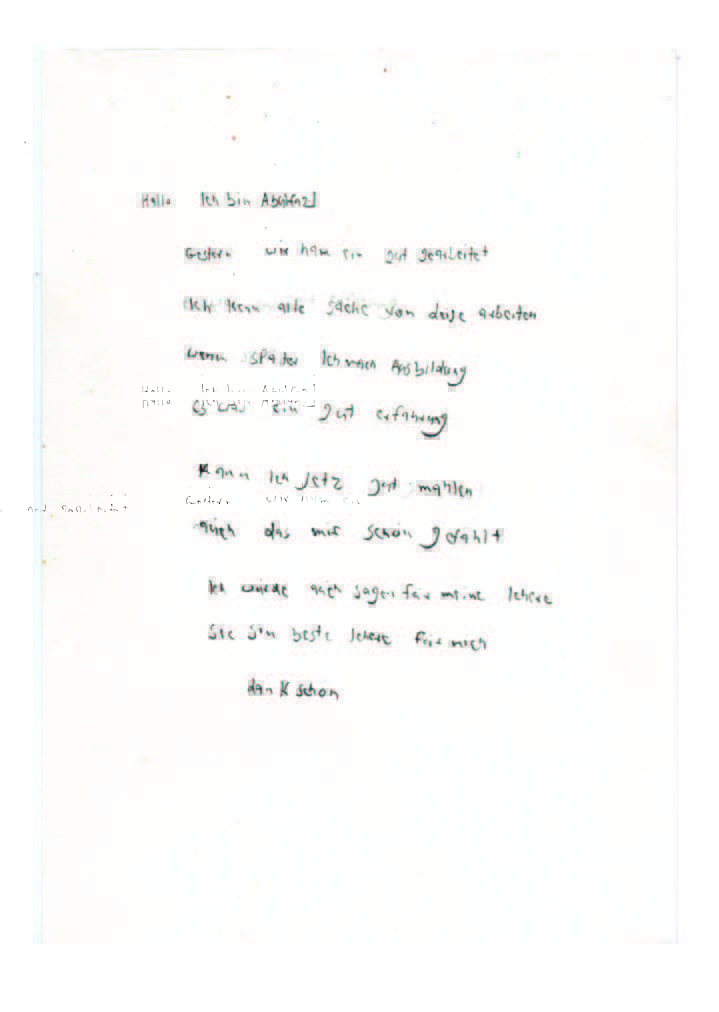 Hallo Ich bin Abalfazl
Gestern wir ham ein gut gearbeitet
Ich kenn alle sache von deise arbeiten
wenn später Ich mach Ausbildung
Hallo Ich bin
es war ein gut erfahrung
Kann Ich jetz gut mahlen
Gestern wir ham ein
auch das mir schön gefahlt
Ich würde auch sagen für meine lehere
Sie sin beste lehere für mich
dank schön